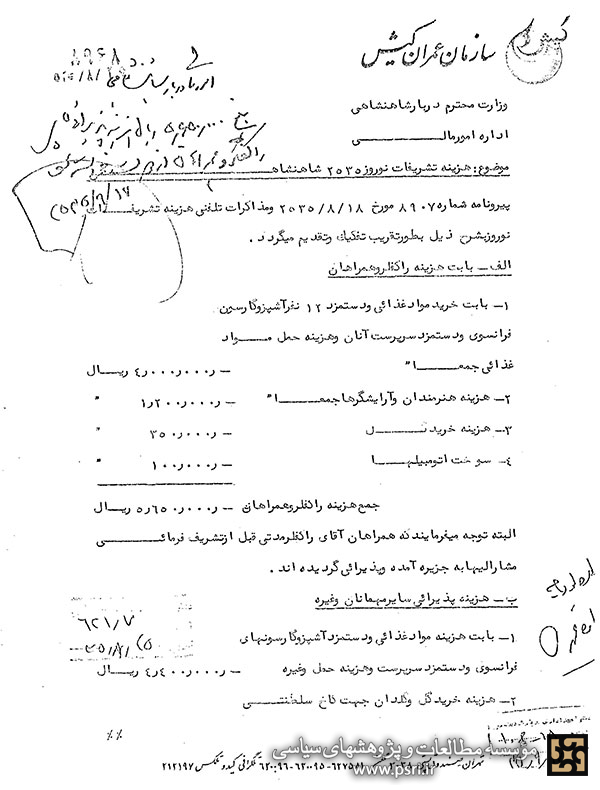 کیش
سازمان عمران کیش
وزارت محترم دربار شاهنشاهی
اداره امور مالی
موضوع: هزینه تشریفات نوروز ۲۵۳۵ شاهنشاهی
پیرو نامه شماره ۸۹۰۷ مورخ ۲۵۳۵/۸/۱۸ و مذاکرات تلفنی هزینه تشریفات
نوروز بشرح ذیل بطور تقریب تفکیک و تقدیم میگردد.
الف – بابت هزینه راکفلر و همراهان
۱– بابت خرید مواد غذائی و دستمزد ۱۲ نفر آشپز و گارسون
فرانسوی و دستمزد سرپرست آنان و هزینه حمل مواد
غذائی جمعاً –ر۴ر۰۰۰ر۰۰۰ ریال
۲– هزینه هنرمندان و آرایشگرها جمعاً –ر۱ر۲۰۰ر۰۰۰ "
۳– هزینه خرید گل –ر۳۵۰ر۰۰۰ "
۴– سوخت اتومبیلها –ر۱۰۰ر۰۰۰ "
جمع هزینه راکفلر و همراهان –ر۵ر۶۵۰ر۰۰۰ ریال
البته توجه میفرمایند که همراهان آقای راکفلر مدتی قبل از تشریف فرمائی
مشارالیها به جزیره آمده و پذیرائی گردیده اند.
ب – هزینه پذیرائی سایر مهمانان و غیره
۱– بابت هزینه مواد غذائی و دستمزد آشپز و گارسونهای
فرانسوی و دستمزد سرپرست و هزینه حمل و غیره –ر۴ر۴۰۰ر۰۰۰ ریال
۲– هزینه خرید گل و گلدان جهت کاخ سلطنتی
۶۲۱/۷
٪٪
موسسه مطالعات و پژوهشهای سیاسی
www.psri.ir
تهران ۶۲۷۵۸۱ – ۶۲۰۰۹۵ – ۶۲۰۰۹۶ تلگرافی کیدو تلکس ۲۱۲۱۹۷